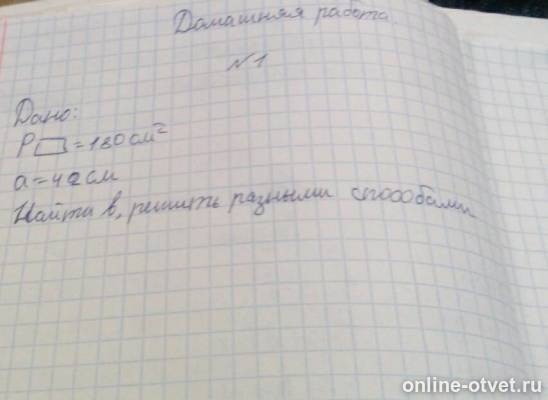 Домашняя работа
№1
Дано:
P▭=180 см²
a=42 см
Найти в, решить разными способами
online-otvet.ru